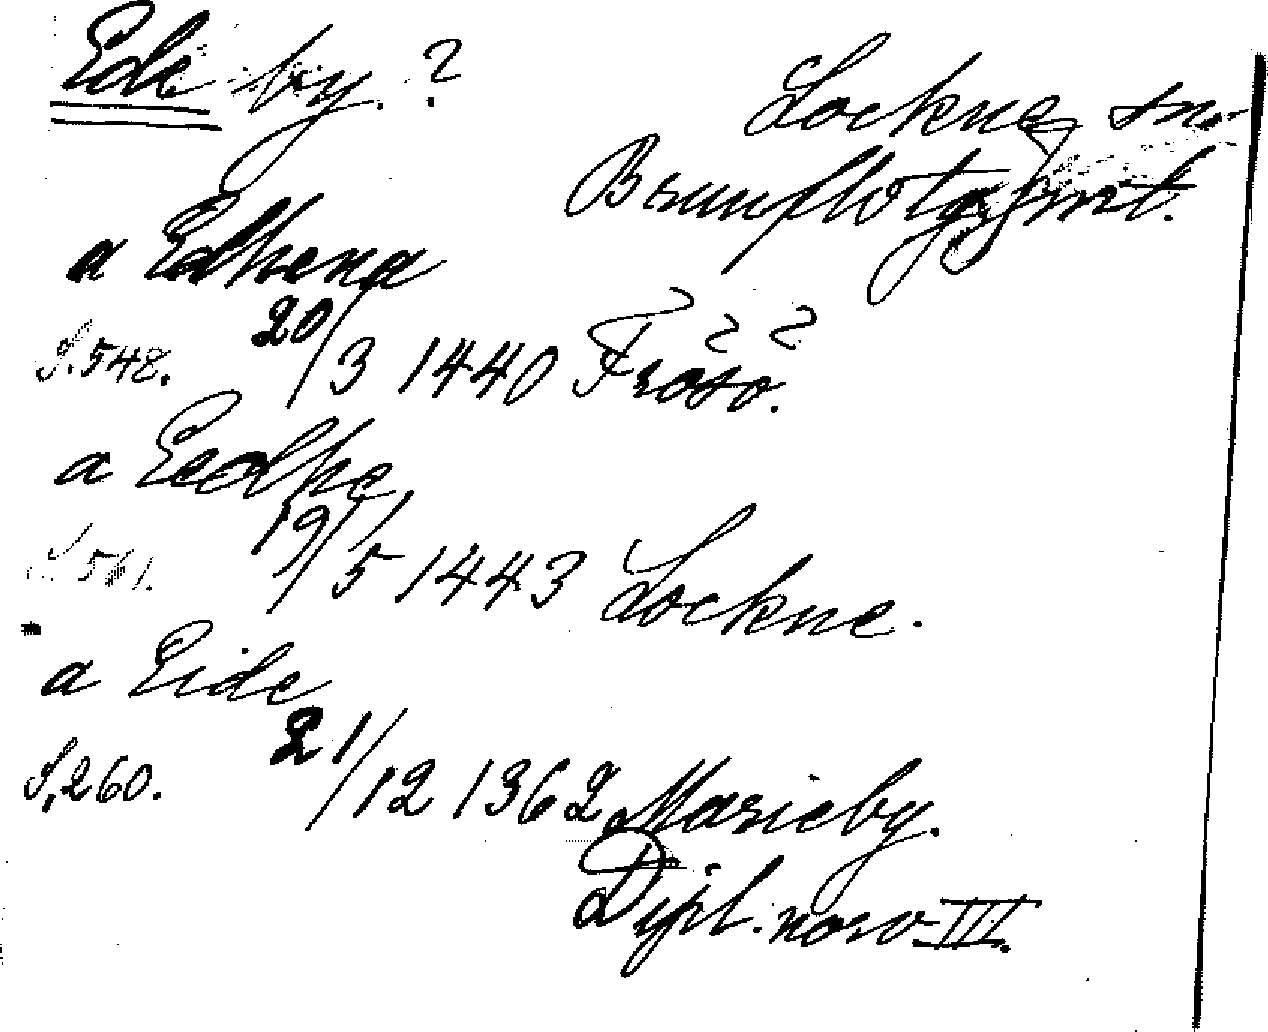 Ede by. ?
Lockne sn.
Brunflo tg. Jmt.
a Edhena
S. 548. 20/3 1440 Frösö.
a Eedhe
S. 561. 19/5 1443 Lockne.
a Eide
S. 260. 21/12 1362 Marieby.
Dipl. norv III.